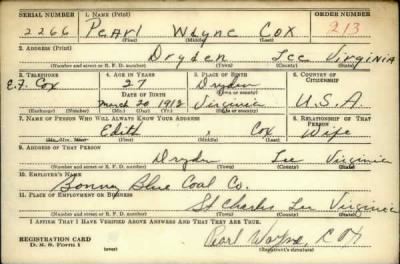 SERIAL NUMBER 1. NAME (Print) ORDER NUMBER
2266 Pearl Wayne Cox 213
(First) (Middle) (Last)
2. ADDRESS (Print)
Dryden Lee Virginia
(Number and street or R. F. D. number) (Town) (County) (State)
3. TELEPHONE 4. AGE IN YEARS 5. PLACE OF BIRTH 6. COUNTRY OF CITIZENSHIP
E. F. Cox 27 Dryden
DATE OF BIRTH (Town or county)
March 20 1913 Virginia U.S.A.
(Exchange) (Number) (Mo.) (Day) (Yr.) (State or country)
7. NAME OF PERSON WHO WILL ALWAYS KNOW YOUR ADDRESS 8. RELATIONSHIP OF THAT PERSON
Edith , Cox Wife
(Mr., Mrs., Miss) (First) (Middle) (Last)
9. ADDRESS OF THAT PERSON
Dryden Lee Virginia
(Number and street or R. F. D. number) (Town) (County) (State)
10. EMPLOYER'S NAME
Bonny Blue Coal Co.
11. PLACE OF EMPLOYMENT OR BUSINESS
St Charles Lee Virginia
(Number and street or R. F. D. number) (Town) (County) (State)
I AFFIRM THAT I HAVE VERIFIED ABOVE ANSWERS AND THAT THEY ARE TRUE.
REGISTRATION CARD Pearl Wayne, Cox
D. S. S. FORM 1 (Registrant's signature)
(over)